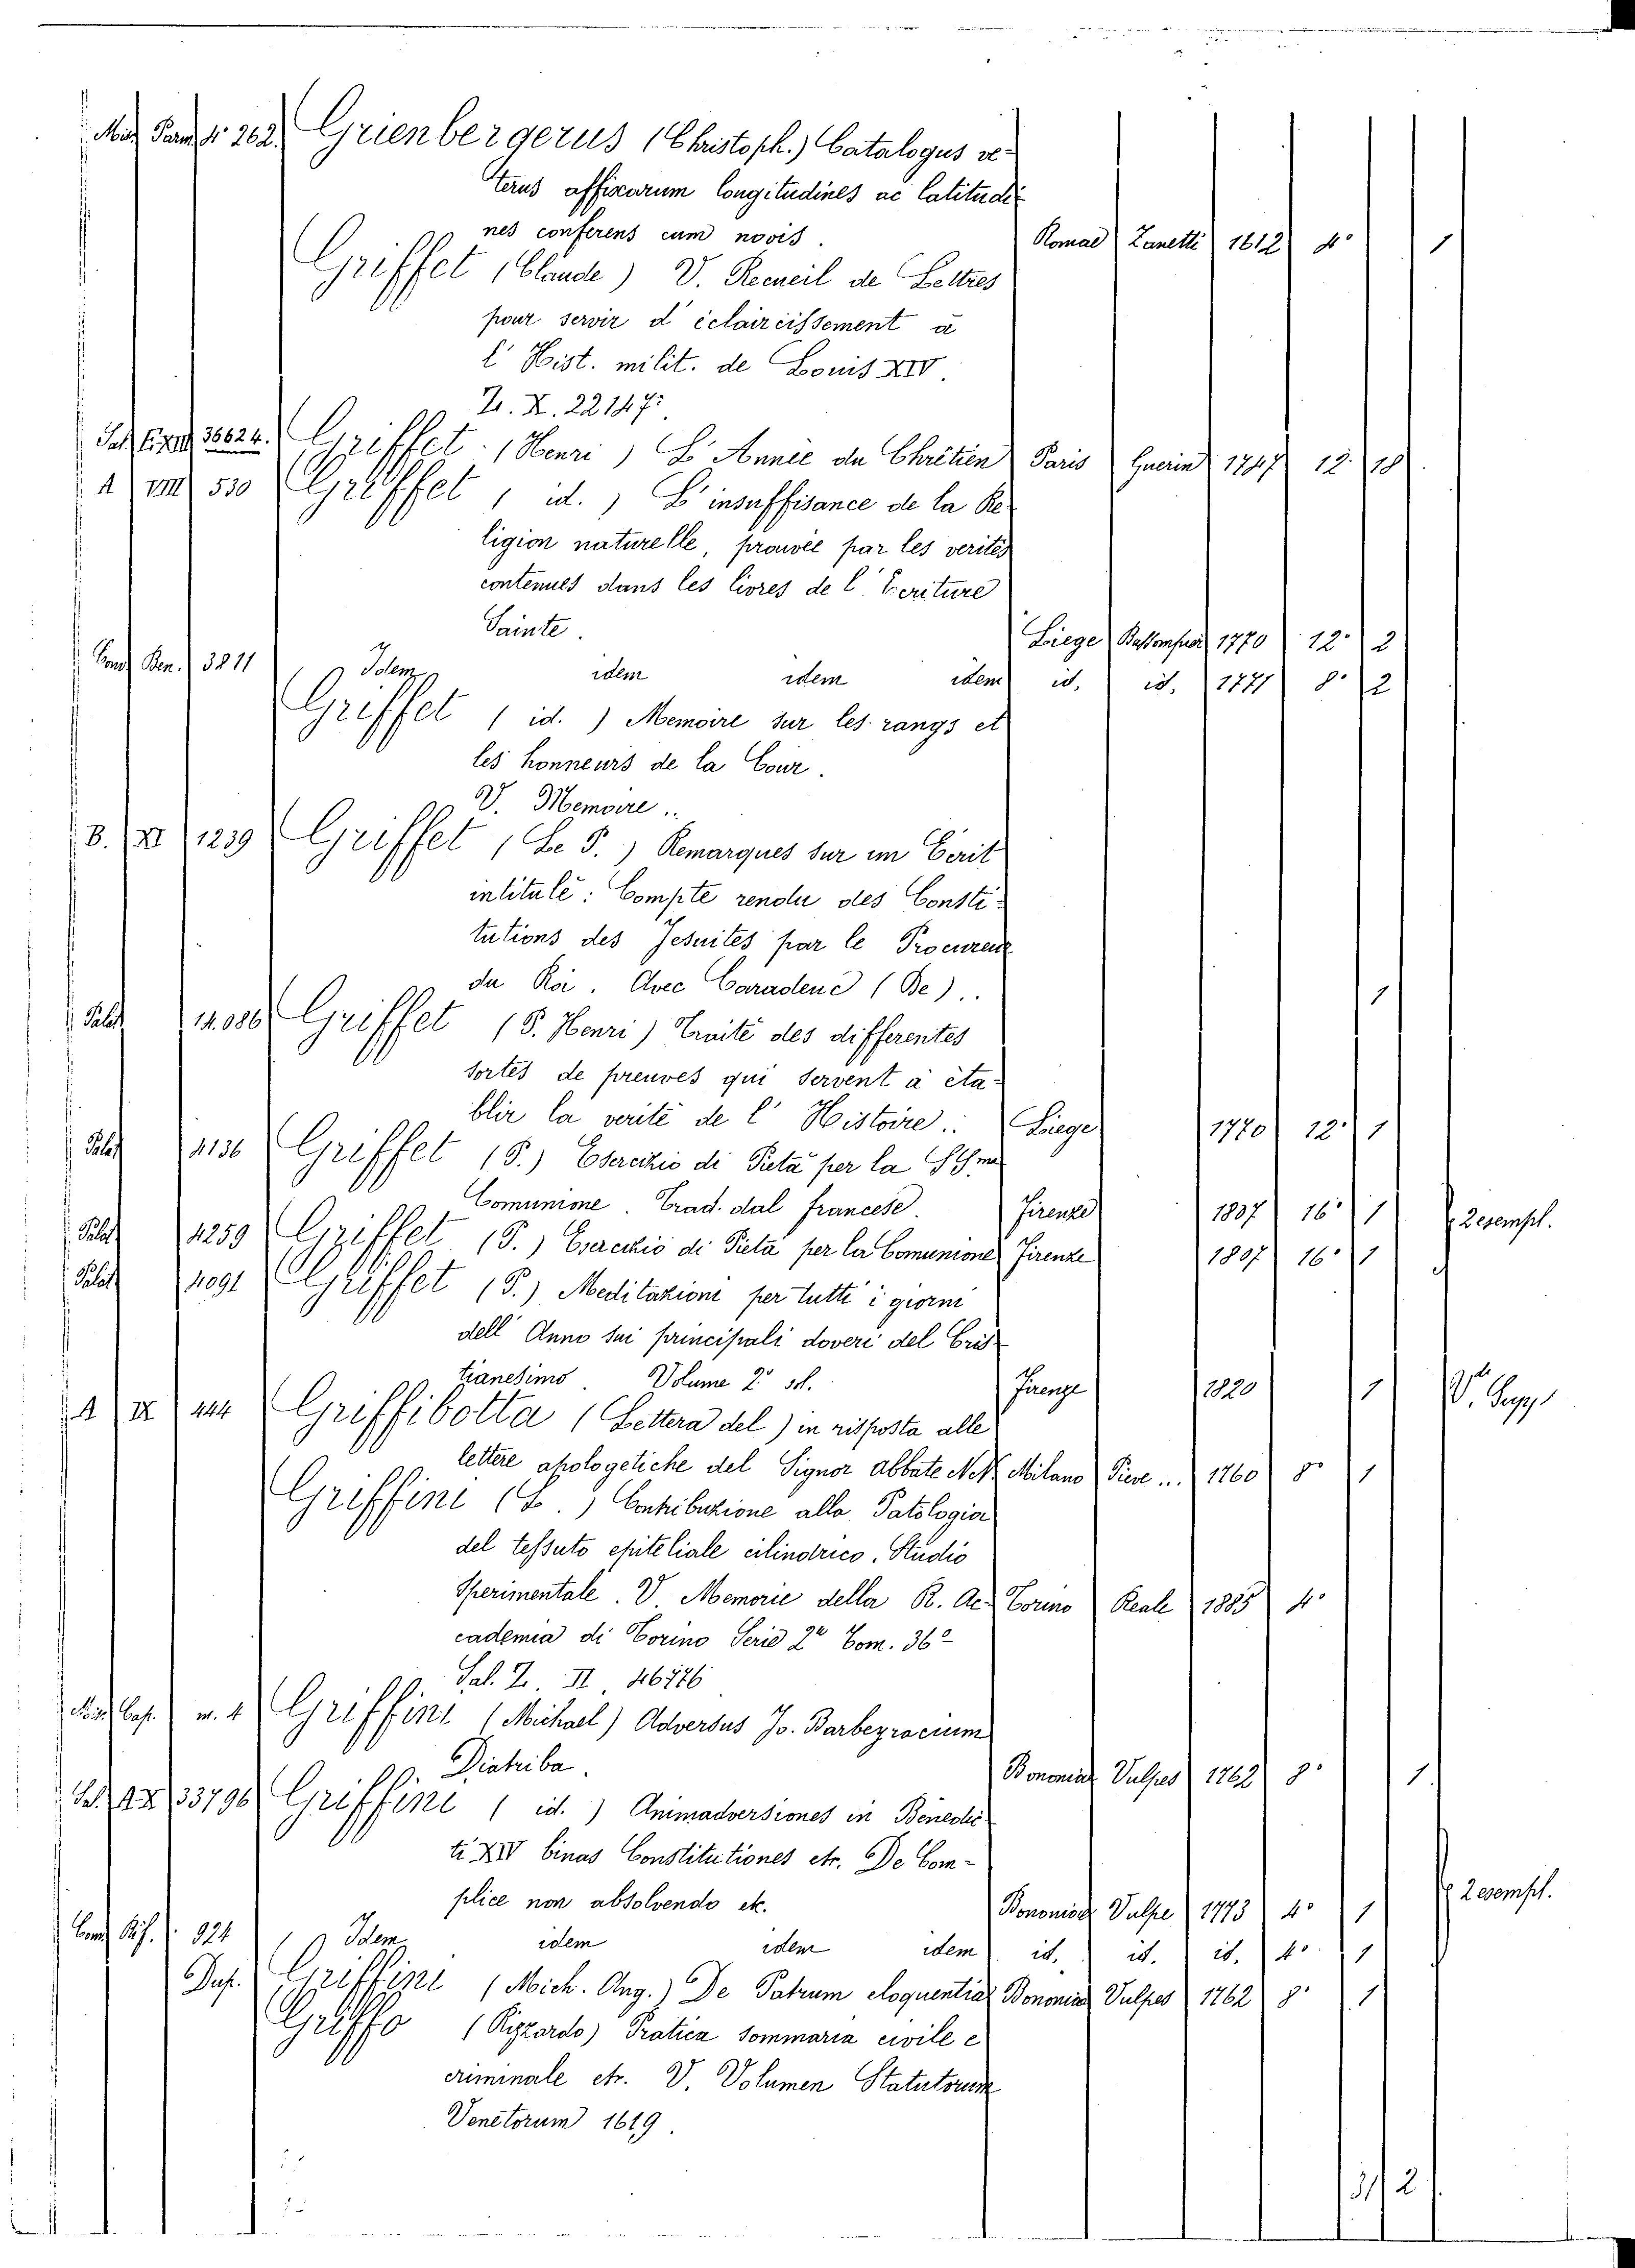 Grienbergerus (Christoph.) Catalogus ve-
terus affixarum longitudines ac latitudi-
nes conferens cum novis. Romae Zanetti 1612 4° 1
Griffet (Claude) V. Recueil de Lettres
pour servir d'éclaircissement a
l'Hist. milit. de Louis XIV.
Z. X. 22147
36624. Griffet (Henri) L'Année du Chrétien Paris Guerin 1747 12° 18
A VIII 530 Griffet (id.) L'insuffisance de la Re-
ligion naturelle, prouvée par les verités
contenues dans les livres de l'Ecriture
Sainte. Liege Bassompier 1770 12° 2
Cond Ben. 3811 Idem idem idem idem id. id. 1771 8° 2
Griffet (id.) Memoire sur les rangs et
les honneurs de la Cour.
V. Memoire..
B. XI 1239 Griffet (Le P.) Remarques sur un Ecrit
intitulé: Compte rendu des Consti-
tutions des Jesuites par le Procureur
du Roi. Avec Caradeuc (De).. 1
Palat 14.086 Griffet (P. Henri) Traité des differentes
sortes de preuves qui servent à éta-
blir la verité de l'Histoire.. Liege 1770 12° 1
Palat 4136 Griffet (P.) Esercizio di Pietà per la SSma
Comunione. Trad. dal francese. Firenze 1807 16° 1 2 esempl.
Palat 4259 Griffet (P.) Esercizio di Pietà per la Comunione Firenze 1807 16° 1
Palat 4091 Griffet (P.) Meditazioni per tutti i giorni
dell'Anno sui principali doveri del Cris-
tianesimo. Volume 2° Firenze 1820 1 V. Supp.
A IX 444 Griffibotta (Lettera del) in risposta alle
lettere apologetiche del Signor abbate N.N. Milano Pieve... 1760 8° 1
Griffini (L.) Contribuzione alla Patologia
del tessuto epiteliale cilindrico. Studio
Sperimentale. V. Memorie della R. Ac- Torino Reale 1885 4°
cademia di Torino Serie 2a Tom. 36°
Sal. Z. II. 46776
m. 4 Griffini (Michael) Adversus Jo. Barbeyracium
Diatriba. Bononiae Vulpes 1762 8° 1.
33796 Griffini (id.) Animadversiones in Benedic-
ti XIV binas Constitutiones etc. De Com-
plice non absolvendo etc. Bononiae Vulpe 1773 4° 1 2 esempl.
Conv Rif. 924 Idem idem idem idem id. id. id. 4° 1
Dup. Griffini (Mich. Ang.) De Patrum eloquentia Bononiae Vulpes 1762 8° 1
Griffo (Rizzardo) Pratica sommaria civile e
criminale etc. V. Volumen Statutorum
Venetorum 1619.
31/2